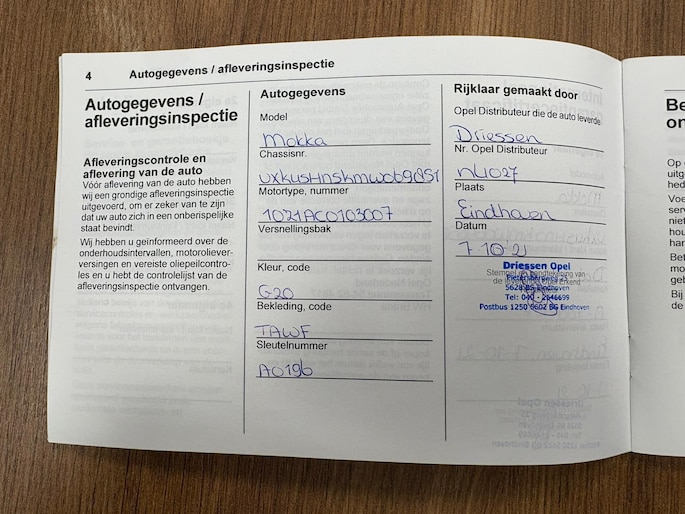 4 Autogegevens / afleveringsinspectie
Autogegevens /
afleveringsinspectie
Afleveringscontrole en
aflevering van de auto
Vóór aflevering van de auto hebben
wij een grondige afleveringsinspectie
uitgevoerd, om er zeker van te zijn
dat uw auto zich in een onberispelijke
staat bevindt.
Wij hebben u geïnformeerd over de
onderhoudsintervallen, motoroliever-
versingen en vereiste oliepeilcontro-
les en u hebt de controlelijst van de
afleveringsinspectie ontvangen.
Autogegevens
Model
Mokka
Chassisnr.
Motortype, nummer
1021AC0103007
Versnellingsbak
Kleur, code
G20
Bekleding, code
TAWF
Sleutelnummer
A0196
Rijklaar gemaakt door
Opel Distributeur die de auto leverde
Driessen
Nr. Opel Distributeur
NL1027
Plaats
Eindhoven
Datum
7-10-21
Driessen Opel
Stempel en handtekening van
Pietersbergweg 23
de leverende Opel Erkend
5628 BS Eindhoven
Tel: 040 - 2646699
Postbus 1250 5602 BG Eindhoven
Be
on
Op
uitg
hed
Voe
serv
niet
hou
han
Bet
mo
geb
Bij
de